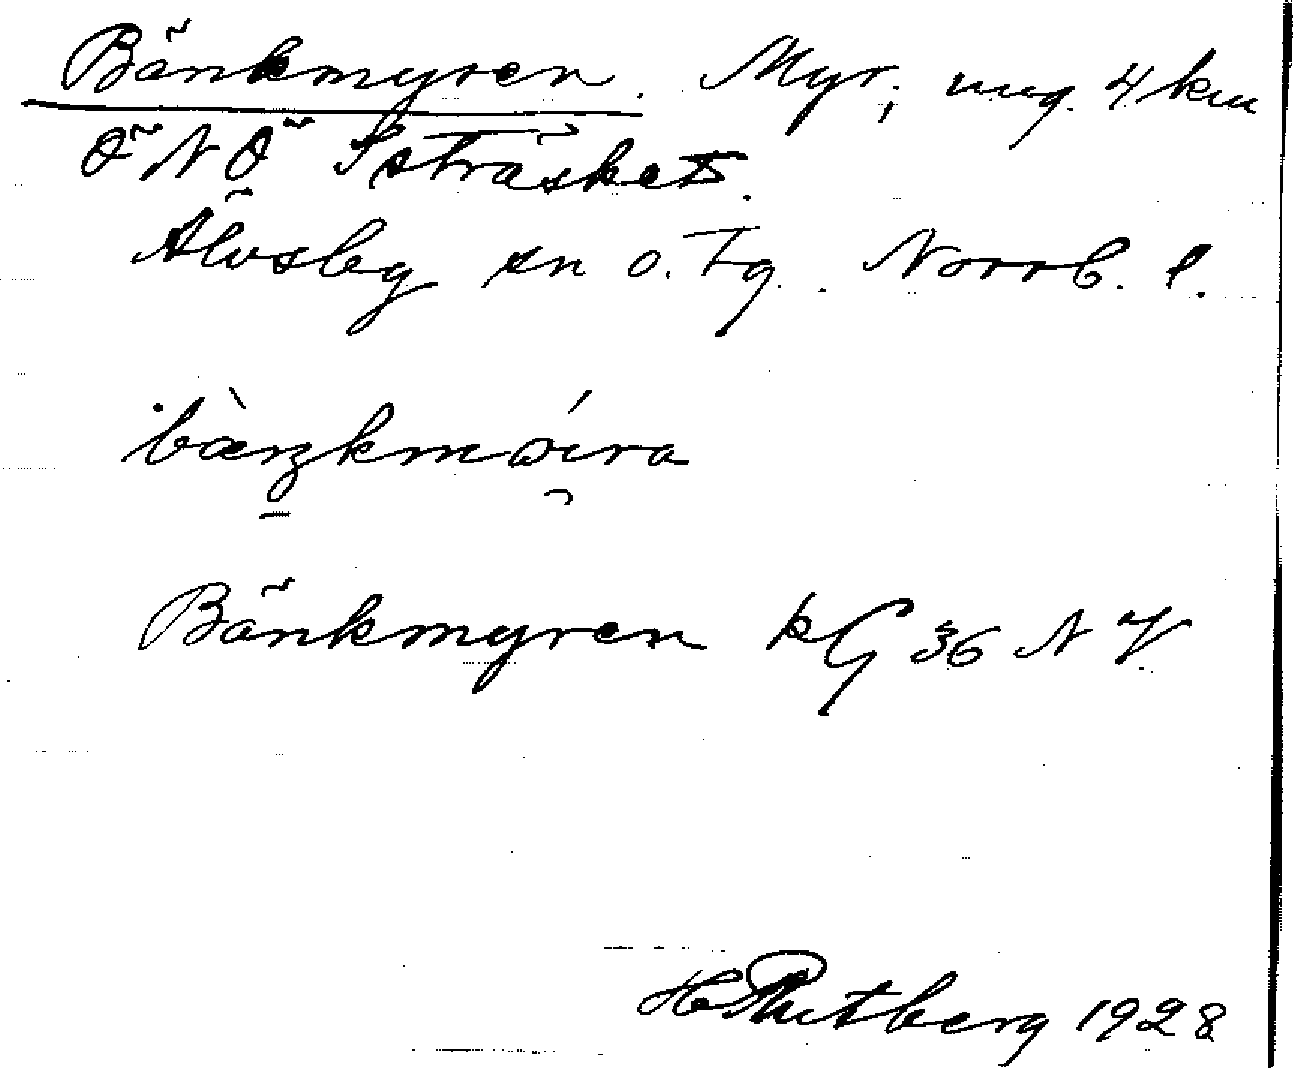 Bänkmyren. Myr, ung. 4 km
ÖNÖ Isträskets.
Älvsby sn o. tg. Norrb. l.
Bänkmyren kG 36 NV
H Rutberg 1928